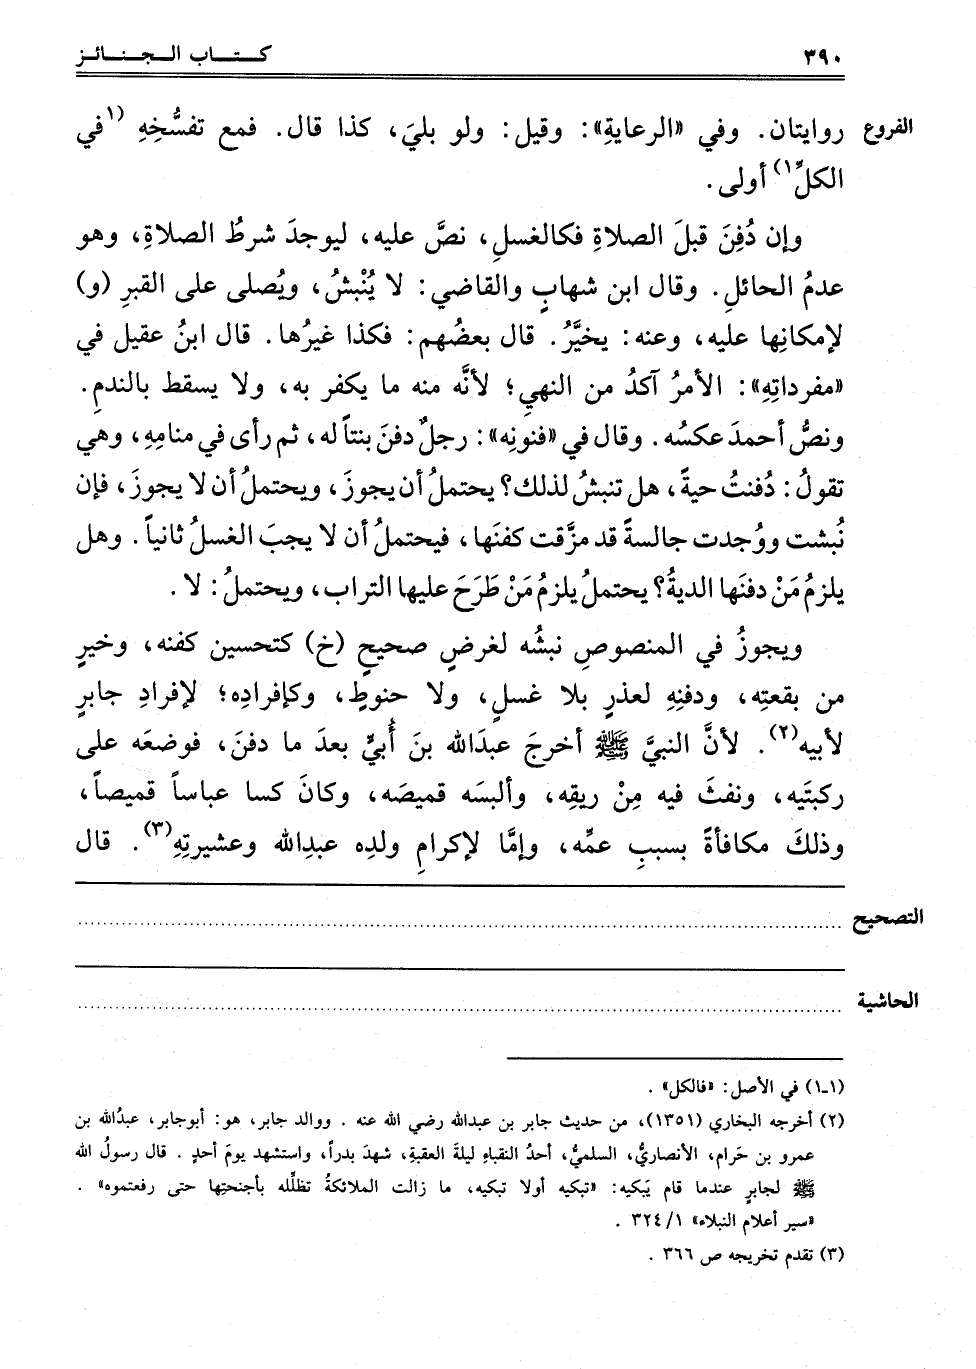 ٣٩٠ كـتـاب الـجـنـائـز
الفروع روايتان. وفي «الرعايةِ»: وقيل: ولو بليَ، كذا قال. فمع تفسُّخِهِ (١في
الكلِّ١) أولى.
وإن دُفِنَ قبلَ الصلاةِ فكالغسلِ، نصَّ عليه، ليوجدَ شرطُ الصلاةِ، وهو
عدمُ الحائلِ. وقال ابن شهابٍ والقاضي: لا يُنْبشُ، ويُصلى على القبرِ (و)
لإمكانِها عليه، وعنه: يخيَّرُ. قال بعضُهم: فكذا غيرُها. قال ابنُ عقيل في
«مفرداتِهِ»: الأمرُ آكدُ من النهيِ؛ لأنَّه منه ما يكفر به، ولا يسقط بالندمِ.
ونصُّ أحمدَ عكسُه. وقال في «فنونِه»: رجلٌ دفنَ بنتاً له، ثم رأى في منامِهِ، وهي
تقولُ: دُفنتُ حيةً، هل تنبشُ لذلك؟ يحتملُ أن يجوزَ، ويحتملُ أن لا يجوزَ، فإن
نُبشت ووُجدت جالسةً قد مزَّقت كفنَها، فيحتملُ أن لا يجبَ الغسلُ ثانياً. وهل
يلزمُ مَنْ دفنَها الديةُ؟ يحتملُ يلزمُ مَنْ طَرَحَ عليها التراب، ويحتملُ: لا.
ويجوزُ في المنصوصِ نبشُه لغرضٍ صحيحٍ (خ) كتحسين كفنه، وخيرٍ
من بقعتِه، ودفنِهِ لعذرٍ بلا غسلٍ، ولا حنوطٍ، وكإفرادِه؛ لإفرادِ جابرٍ
لأبيه(٢). لأنَّ النبيَّ ﷺ أخرجَ عبدَالله بنَ أُبيٍّ بعدَ ما دفنَ، فوضعَه على
ركبتَيه، ونفثَ فيه مِنْ ريقِه، وألبسَه قميصَه، وكانَ كسا عباساً قميصاً،
وذلكَ مكافأةً بسببِ عمِّه، وإمَّا لإكرامِ ولدِه عبدِالله وعشيرتِهِ(٣). قال
التصحيح ................................................
الحاشية ................................................
(١-١) في الأصل: «فالكل».
(٢) أخرجه البخاري (١٣٥١)، من حديث جابر بن عبدالله رضي الله عنه. ووالد جابر، هو: أبوجابر، عبدُالله بن
عمرو بن حَرام، الأنصاريُّ، السلميُّ، أحدُ النقباءِ ليلةَ العقبةِ، شهدَ بدراً، واستشهد يومَ أحدٍ. قال رسولُ الله
ﷺ لجابرٍ عندما قام يَبكيه: «تبكيه أولا تبكيه، ما زالت الملائكةُ تظلِّله بأجنحتِها حتى رفعتموه».
«سير أعلام النبلاء» ١/ ٣٢٤.
(٣) تقدم تخريجه ص ٣٦٦.